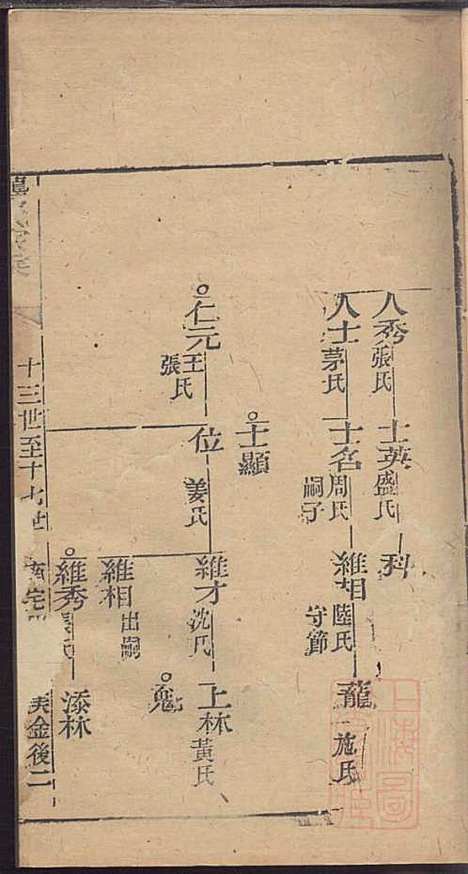 人秀 張氏
士英 盛氏
科
人士 茅氏
士名 周氏 嗣子
維相 陸氏 守節
龍 施氏
士顯
仁元 王氏 張氏
位 姜氏
維才 沈氏
上林 黃氏
維相 出嗣
維秀
添林
十三世至十七世
宅
金後二